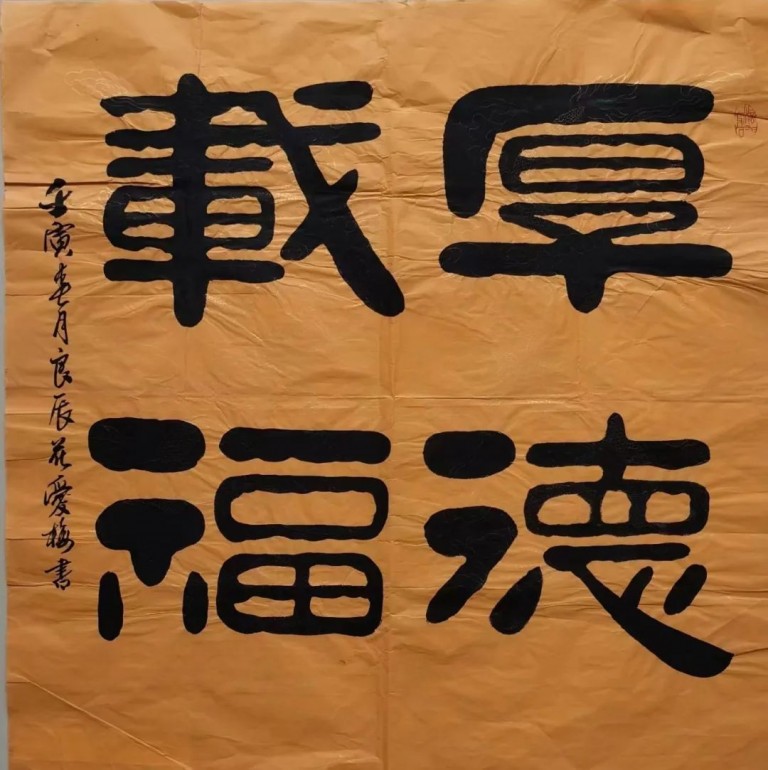 厚德
載福
壬寅春月良辰愛梅書